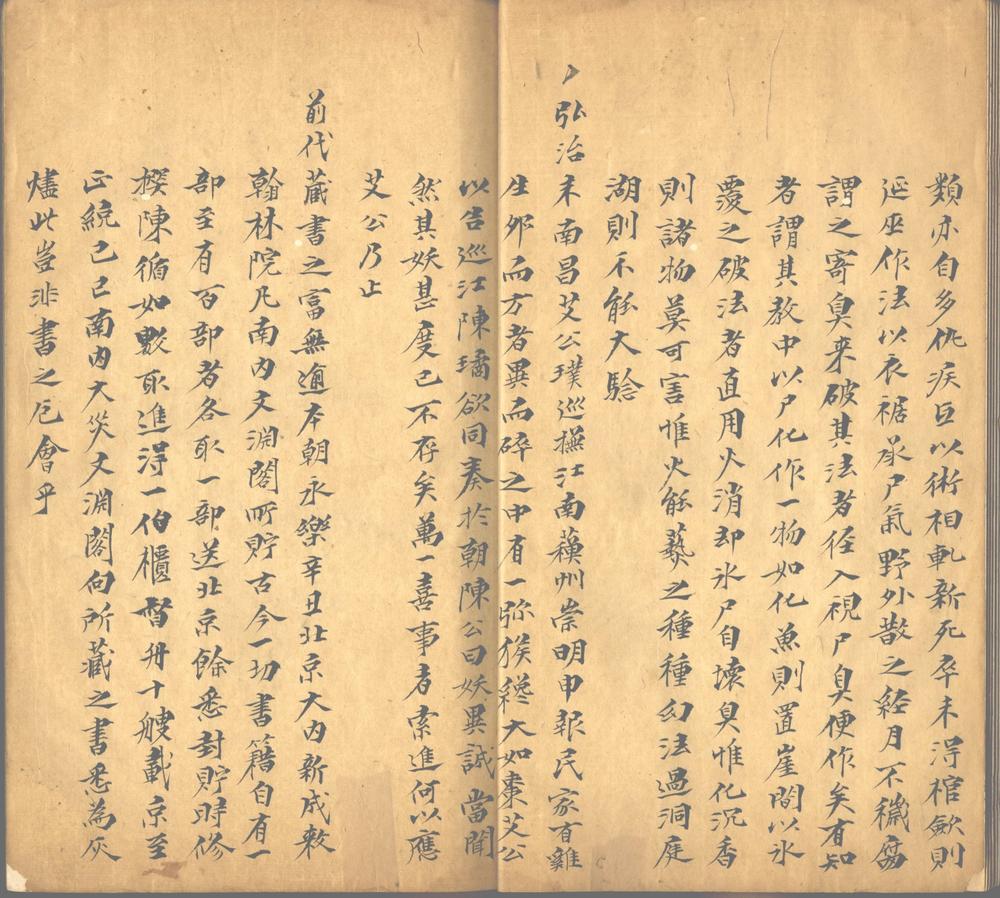 類亦自多仇疾互以術相軋新死卒未得棺斂則
延巫作法以衣裾承尸氣野外散之経月不穢腐
謂之寄臭来破其法者径入視尸臭便作矣有知
者謂其教中以尸化作一物如化魚則置崖間以氷
覆之破法者直用火消却氷尸自壊臭惟化沉香
則諸物莫可害惟火能爇之種種幻法過洞庭
湖則不能大驗
弘治末南昌艾公璞巡撫江南蘓州崇明申報民家有雞
生卵而方者異而碎之中有一弥猴纔大如棗艾公
以告巡江陳璚欲同奏於朝陳公曰妖異誠當聞
然其妖甚度已不存矣萬一喜事者索進何以應
艾公乃止
前代藏書之富無逾本朝永樂辛丑北京大内新成敕
翰林院凡南内文淵閣所貯古今一切書籍自有一
部至有百部者各取一部送北京餘悉封貯時修
撰陳循如數取進得一伯櫃督舟十艘載京至
正統己巳南内大災文淵閣向所藏之書悉為灰
燼此豈非書之厄會乎